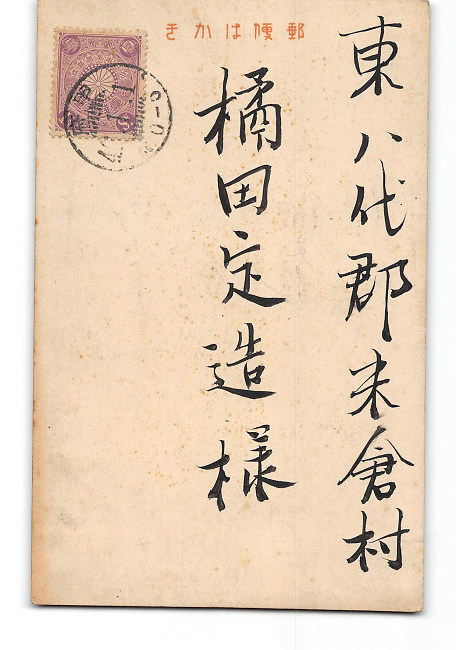 郵便はかき
東八代郡米倉村
橘田定造様